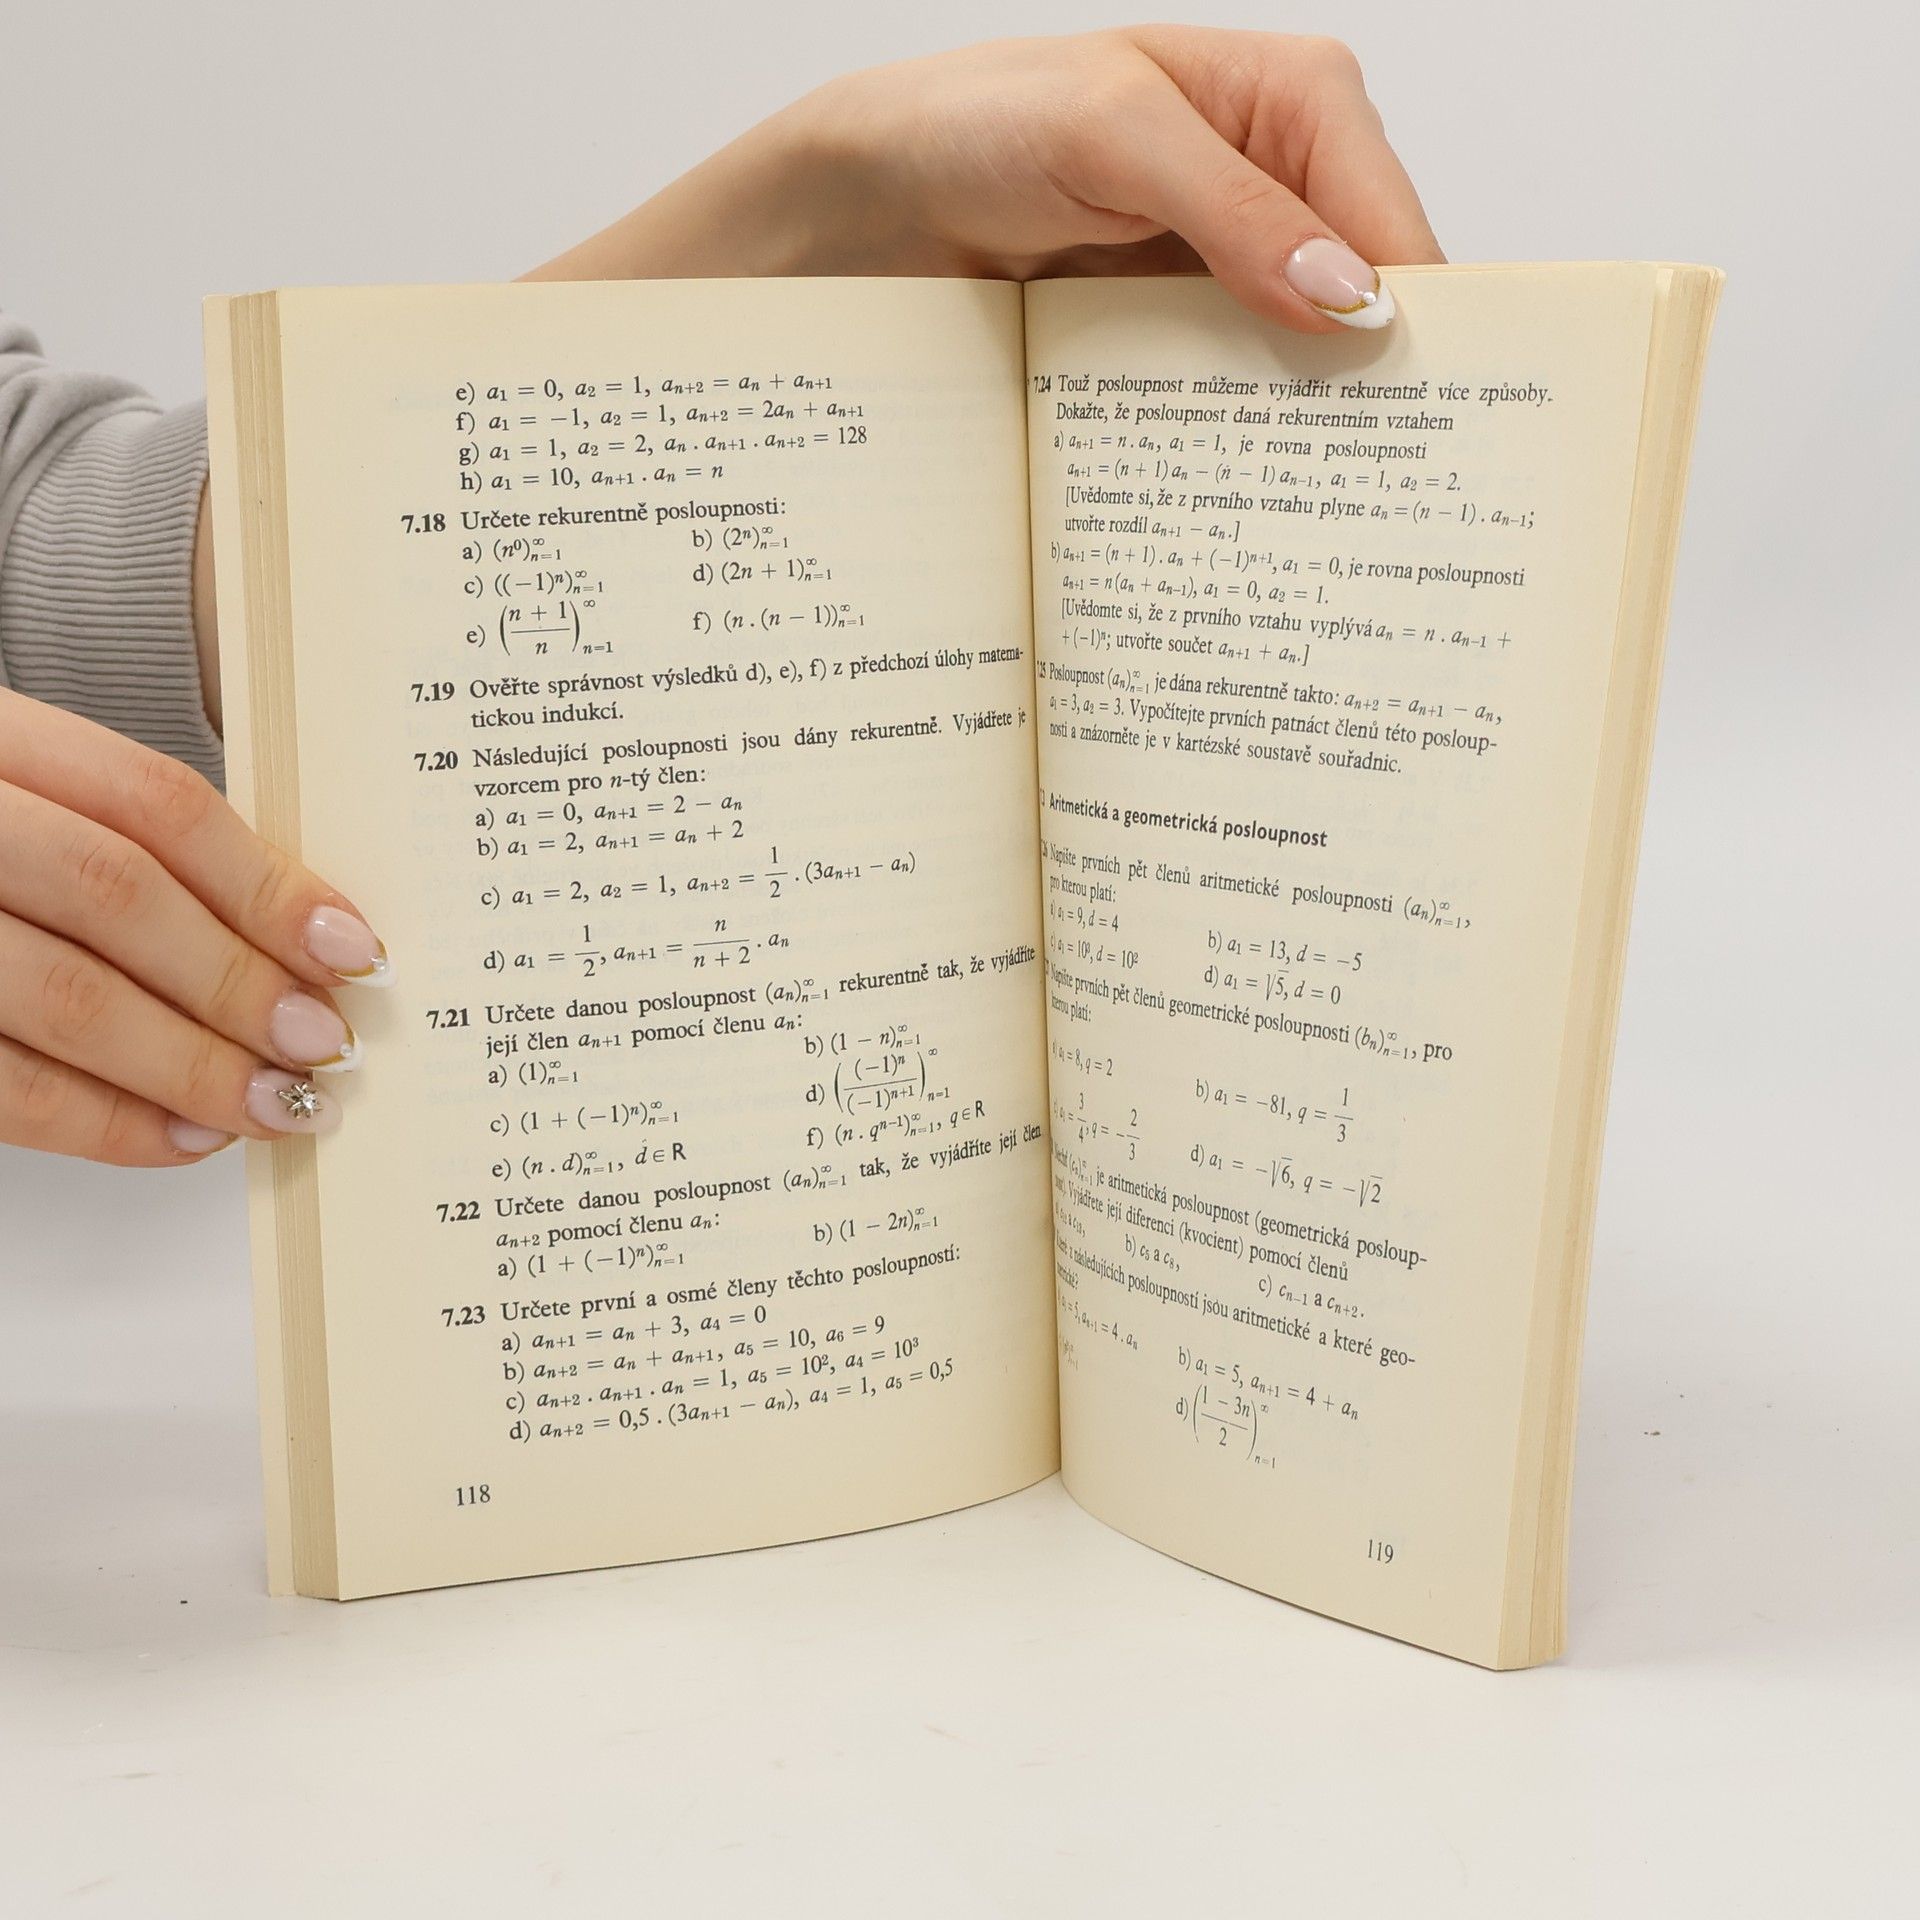 e) a₁ = 0, a₂ = 1, aₙ₊₂ = aₙ + aₙ₊₁
f) a₁ = −1, a₂ = 1, aₙ₊₂ = 2aₙ + aₙ₊₁
g) a₁ = 1, a₂ = 2, aₙ . aₙ₊₁ . aₙ₊₂ = 128
h) a₁ = 10, aₙ₊₁ . aₙ = n
7.18 Určete rekurentně posloupnosti:
a) (n⁰)ₙ₌₁^∞ b) (2ⁿ)ₙ₌₁^∞
c) ((−1)ⁿ)ₙ₌₁^∞ d) (2n + 1)ₙ₌₁^∞
e) ((n + 1)/n)ₙ₌₁^∞ f) (n . (n − 1))ₙ₌₁^∞
7.19 Ověřte správnost výsledků d), e), f) z předchozí úlohy matema-
tickou indukcí.
7.20 Následující posloupnosti jsou dány rekurentně. Vyjádřete je
vzorcem pro n-tý člen:
a) a₁ = 0, aₙ₊₁ = 2 − aₙ
b) a₁ = 2, aₙ₊₁ = aₙ + 2
c) a₁ = 2, a₂ = 1, aₙ₊₂ = 1/2 . (3aₙ₊₁ − aₙ)
d) a₁ = 1/2, aₙ₊₁ = n/(n + 2) . aₙ
7.21 Určete danou posloupnost (aₙ)ₙ₌₁^∞ rekurentně tak, že vyjádříte
její člen aₙ₊₁ pomocí členu aₙ:
a) (1)ₙ₌₁^∞ b) (1 − n)ₙ₌₁^∞
c) (1 + (−1)ⁿ)ₙ₌₁^∞ d) ((−1)ⁿ/(−1)ⁿ⁺¹)ₙ₌₁^∞
e) (n . d)ₙ₌₁^∞, d ∈ R f) (n . qⁿ⁻¹)ₙ₌₁^∞, q ∈ R
7.22 Určete danou posloupnost (aₙ)ₙ₌₁^∞ tak, že vyjádříte její člen
aₙ₊₂ pomocí členu aₙ:
a) (1 + (−1)ⁿ)ₙ₌₁^∞ b) (1 − 2n)ₙ₌₁^∞
7.23 Určete první a osmé členy těchto posloupností:
a) aₙ₊₁ = aₙ + 3, a₄ = 0
b) aₙ₊₂ = aₙ + aₙ₊₁, a₅ = 10, a₆ = 9
c) aₙ₊₂ . aₙ₊₁ . aₙ = 1, a₅ = 10², a₄ = 10³
d) aₙ₊₂ = 0,5 . (3aₙ₊₁ − aₙ), a₄ = 1, a₅ = 0,5
118
7.24 Touž posloupnost můžeme vyjádřit rekurentně více způsoby.
Dokažte, že posloupnost daná rekurentním vztahem
a) aₙ₊₁ = n . aₙ, a₁ = 1, je rovna posloupnosti
aₙ₊₁ = (n + 1) aₙ − (n − 1) aₙ₋₁, a₁ = 1, a₂ = 2.
[Uvědomte si, že z prvního vztahu plyne aₙ = (n − 1) . aₙ₋₁;
utvořte rozdíl aₙ₊₁ − aₙ.]
b) aₙ₊₁ = (n + 1) . aₙ + (−1)ⁿ⁺¹, a₁ = 0, je rovna posloupnosti
aₙ₊₁ = n(aₙ + aₙ₋₁), a₁ = 0, a₂ = 1.
[Uvědomte si, že z prvního vztahu vyplývá aₙ = n . aₙ₋₁ +
+ (−1)ⁿ; utvořte součet aₙ₊₁ + aₙ.]
Posloupnost (aₙ)ₙ₌₁^∞ je dána rekurentně takto: aₙ₊₂ = aₙ₊₁ − aₙ,
a₁ = 3, a₂ = 3. Vypočítejte prvních patnáct členů této posloup-
nosti a znázorněte je v kartézské soustavě souřadnic.
Aritmetická a geometrická posloupnost
Napište prvních pět členů aritmetické posloupnosti (aₙ)ₙ₌₁^∞,
pro kterou platí:
a) a₁ = 9, d = 4 b) a₁ = 13, d = −5
a₁ = 10⁰, d = 10² d) a₁ = √5, d = 0
Napište prvních pět členů geometrické posloupnosti (bₙ)ₙ₌₁^∞, pro
kterou platí:
a₁ = 8, q = 2 b) a₁ = −81, q = 1/3
a₁ = 3/4, q = −2/3 d) a₁ = −√6, q = −√2
je aritmetická posloupnost (geometrická posloup-
Vyjádřete její diferenci (kvocient) pomocí členů
b) c₅ a c₈, c) cₙ₋₁ a cₙ₊₂.
z následujících posloupností jsou aritmetické a které geo-
a₁ = 5, aₙ₊₁ = 4 . aₙ b) a₁ = 5, aₙ₊₁ = 4 + aₙ
d) ((1 − 3n)/2)ₙ₌₁^∞
119